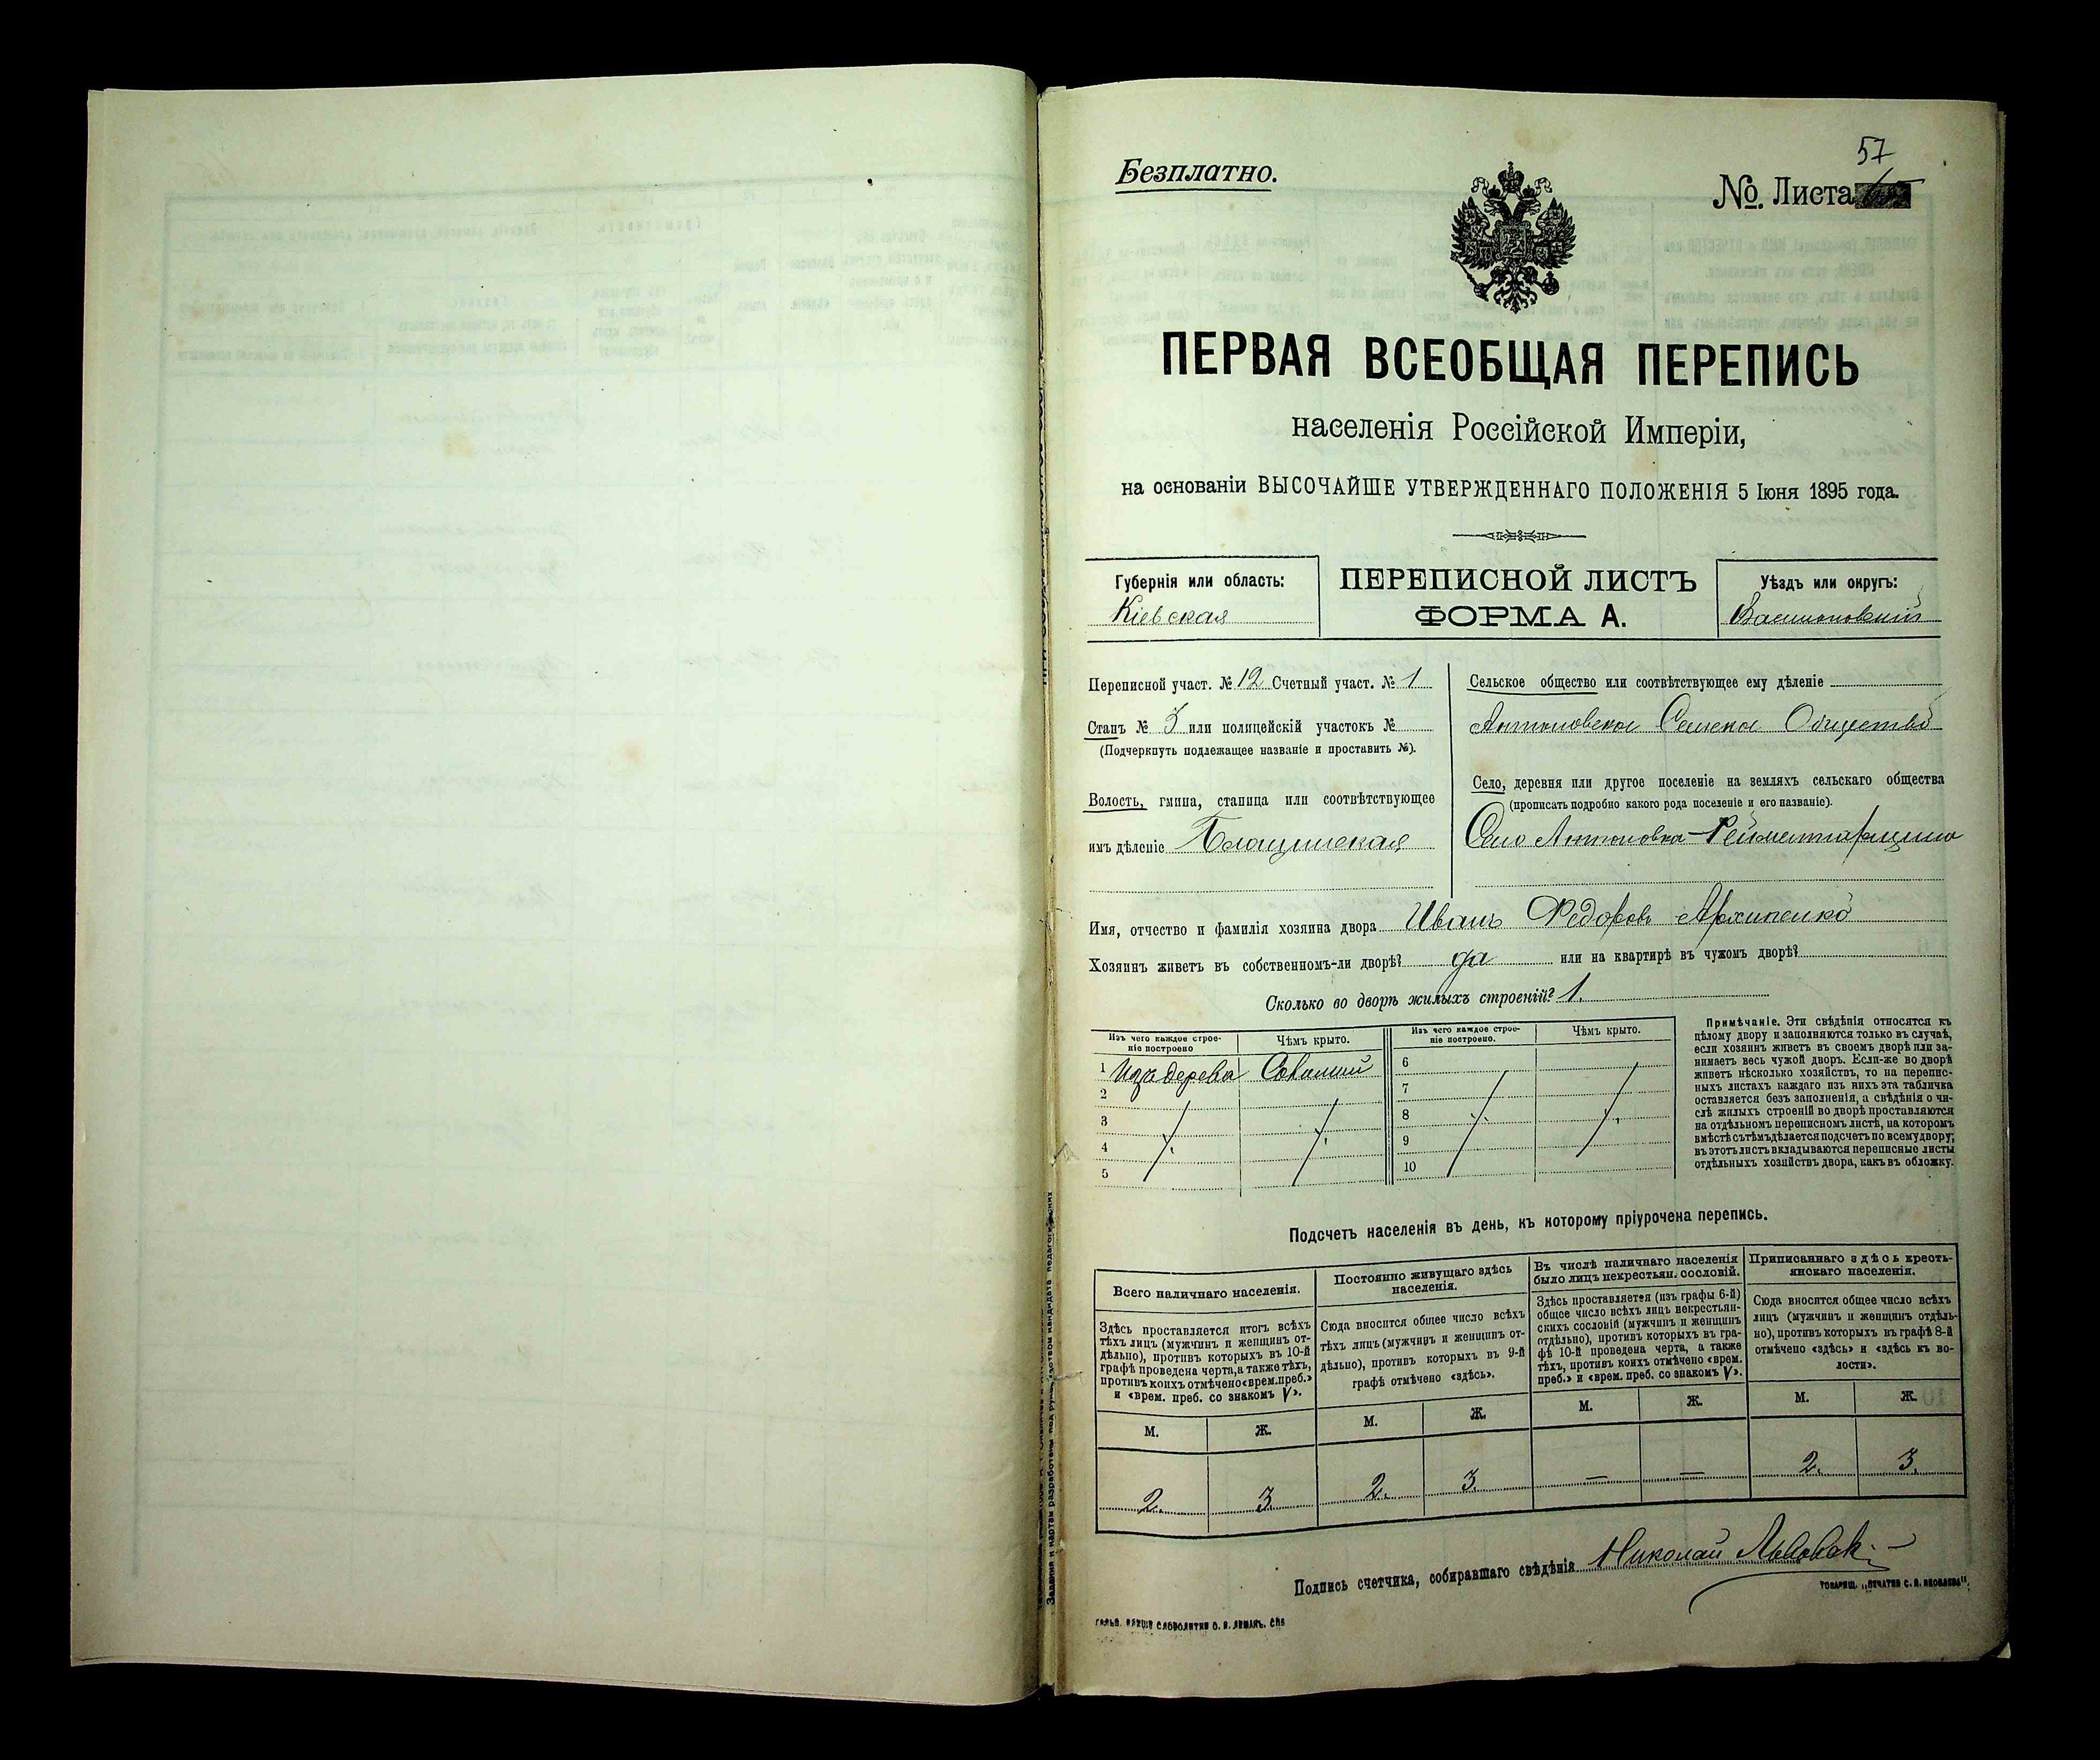 57
Безплатно.
№. Листа
ПЕРВАЯ ВСЕОБЩАЯ ПЕРЕПИСЬ
населенія Россійской Имперіи,
на основаніи ВЫСОЧАЙШЕ УТВЕРЖДЕННАГО ПОЛОЖЕНІЯ 5 Іюня 1895 года.
Губернія или область:
Кіевская
ПЕРЕПИСНОЙ ЛИСТЪ
ФОРМА А.
Уѣздъ или округъ:
Переписной участ. № 12 Счетный участ. № 1
Станъ № 3 или полицейскій участокъ №
(Подчеркнуть подлежащее названіе и проставить №).
Волость, гмина, станица или соотвѣтствующее
имъ дѣленіе
Сельское общество или соотвѣтствующее ему дѣленіе
Антоновское Сельское Общество
Село, деревня или другое поселеніе на земляхъ сельскаго общества
(прописать подробно какого рода поселеніе и его названіе).
Село Антоновка-
Имя, отчество и фамилія хозяина двора Иванъ Федоровъ Архипенко
Хозяинъ живетъ въ собственномъ-ли дворѣ? да или на квартирѣ въ чужомъ дворѣ?
Сколько во дворѣ жилыхъ строеній? 1.
Изъ чего каждое строе-
ніе построено
Чѣмъ крыто.
Изъ чего каждое строе-
ніе построено.
Чѣмъ крыто.
1 Изъ дерева Соломой
2
3
4
5
6
7
8
9
10
Примѣчаніе. Эти свѣдѣнія относятся къ
цѣлому двору и заполняются только въ случаѣ,
если хозяинъ живетъ въ своемъ дворѣ или за-
нимаетъ весь чужой дворъ. Если-же во дворѣ
живетъ нѣсколько хозяйствъ, то на перепис-
ныхъ листахъ каждаго изъ нихъ эта табличка
оставляется безъ заполненія, а свѣдѣнія о чи-
слѣ жилыхъ строеній во дворѣ проставляются
на отдѣльномъ переписномъ листѣ, на которомъ
вмѣстѣ съ тѣмъ дѣлается подсчетъ по всему двору;
въ этотъ листъ вкладываются переписные листы
отдѣльныхъ хозяйствъ двора, какъ въ обложку.
Подсчетъ населенія въ день, къ которому пріурочена перепись.
Всего наличнаго населенія.
Здѣсь проставляется итогъ всѣхъ
тѣхъ лицъ (мужчинъ и женщинъ от-
дѣльно), противъ которыхъ въ 10-й
графѣ проведена черта, а также тѣхъ,
противъ коихъ отмѣчено «врем. преб.»
и «врем. преб. со знакомъ V».
Постоянно живущаго здѣсь
населенія.
Сюда вносится общее число всѣхъ
тѣхъ лицъ (мужчинъ и женщинъ от-
дѣльно), противъ которыхъ въ 9-й
графѣ отмѣчено «здѣсь».
Въ числѣ наличнаго населенія
было лицъ некрестьян. сословій.
Здѣсь проставляется (изъ графы 6-й)
общее число всѣхъ лицъ некрестьян-
скихъ сословій (мужчинъ и женщинъ
отдѣльно), противъ которыхъ въ гра-
фѣ 10-й проведена черта, а также
тѣхъ, противъ коихъ отмѣчено «врем.
преб.» и «врем. преб. со знакомъ V».
Приписаннаго здѣсь кресть-
янскаго населенія.
Сюда вносится общее число всѣхъ
лицъ (мужчинъ и женщинъ отдѣль-
но), противъ которыхъ въ графѣ 8-й
отмѣчено «здѣсь» и «здѣсь къ во-
лости».
М. Ж. М. Ж. М. Ж. М. Ж.
2. 3. 2. 3. — — 2. 3.
Подпись счетчика, собиравшаго свѣдѣнія Николай